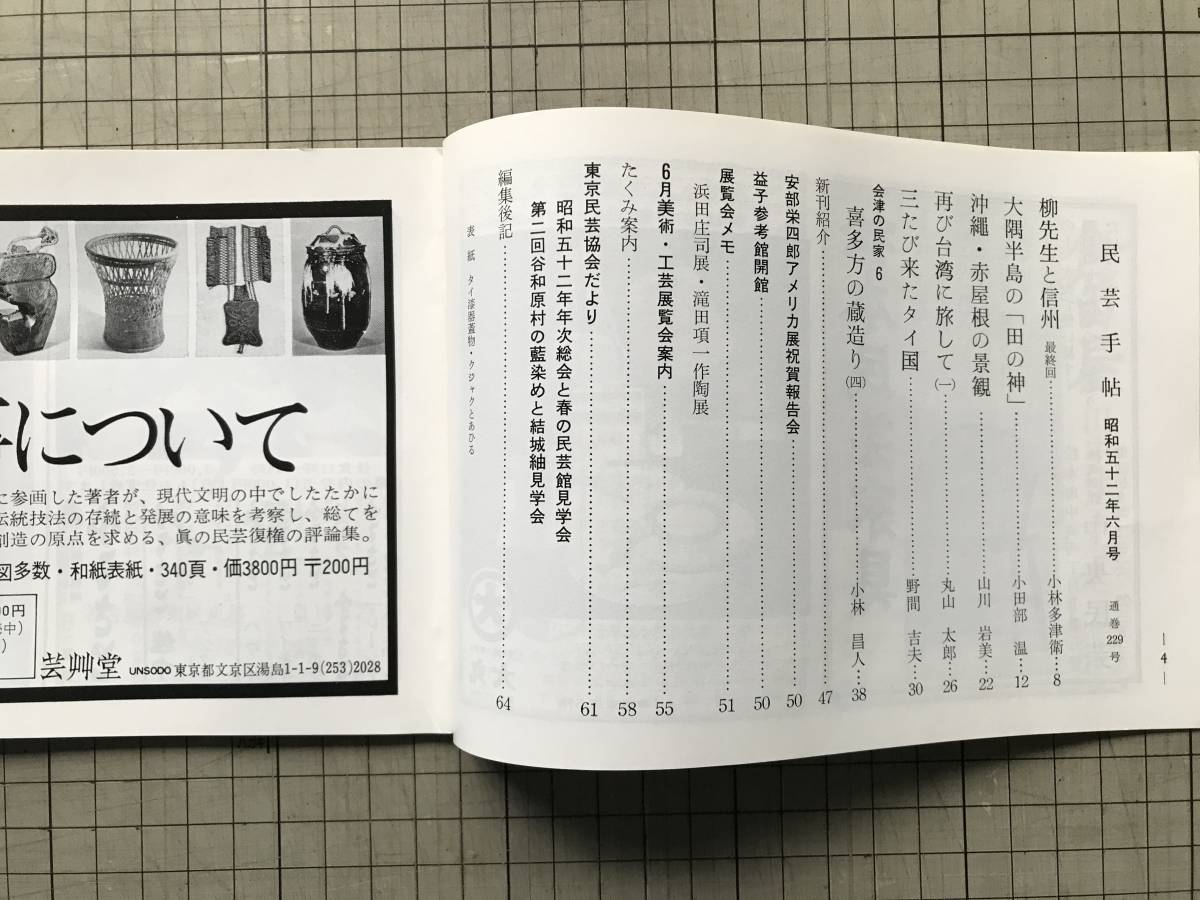 民芸手帖 昭和五十二年六月号 通巻229号
―4―
柳先生と信州 最終回……小林多津衛…8
大隅半島の「田の神」……小田部 温…12
沖縄・赤屋根の景観……山川 岩美…22
再び台湾に旅して(一)……丸山 太郎…26
三たび来たタイ国……野間 吉夫…30
会津の民家 6
喜多方の蔵造り(四)……小林 昌人…38
新刊紹介……47
安部栄四郎アメリカ展祝賀報告会……50
益子参考館開館……50
展覧会メモ……51
浜田庄司展・滝田項一作陶展
6月美術・工芸展覧会案内……55
たくみ案内……58
東京民芸協会だより……61
昭和五十二年年次総会と春の民芸館見学会
第二回谷和原村の藍染めと結城紬見学会
編集後記……64
表紙 タイ漆器蓋物・クジャクとあひる
について
に参画した著者が、現代文明の中でしたたかに
伝統技法の存続と発展の意味を考察し、総てを
創造の原点を求める、眞の民芸復権の評論集。
図多数・和紙表紙・340頁・価3800円 〒200円
00円
中)
)
芸艸堂 UNSODO 東京都文京区湯島1-1-9(253)2028